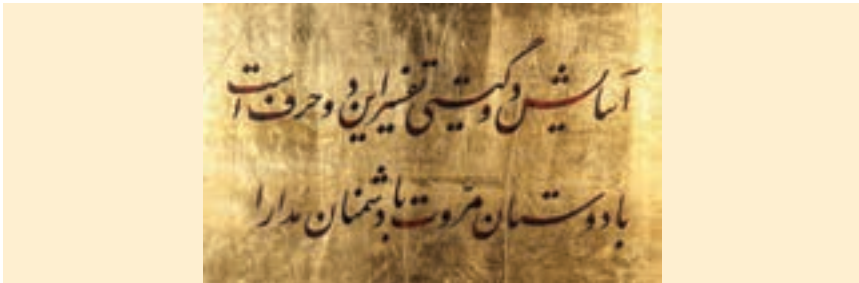 آسایش دو گیتی تفسیر این دو حرف است
با دوستان مروّت با دشمنان مدارا